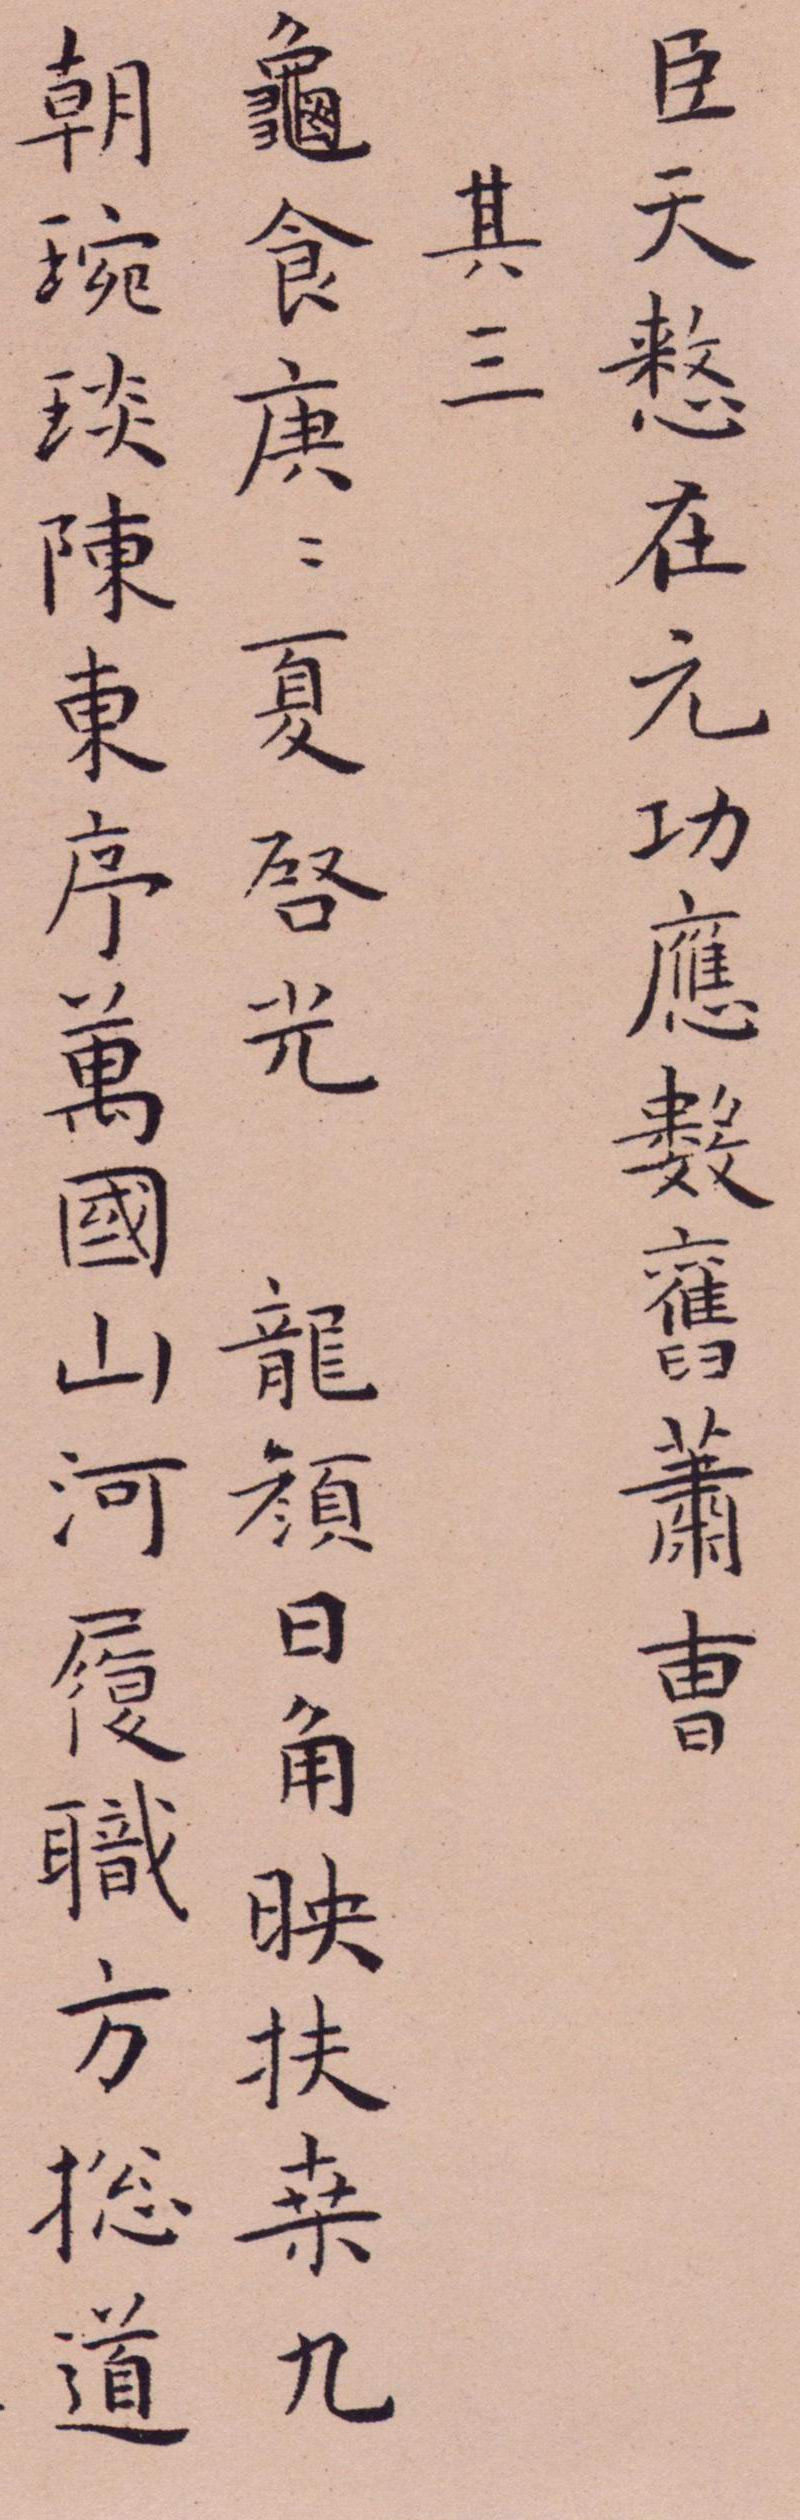 臣天憗在元功應數舊蕭曺
其三
龜食庚〻夏啓光　龍顏日角映扶桒九
朝琬琰陳東序萬國山河履職方捴道